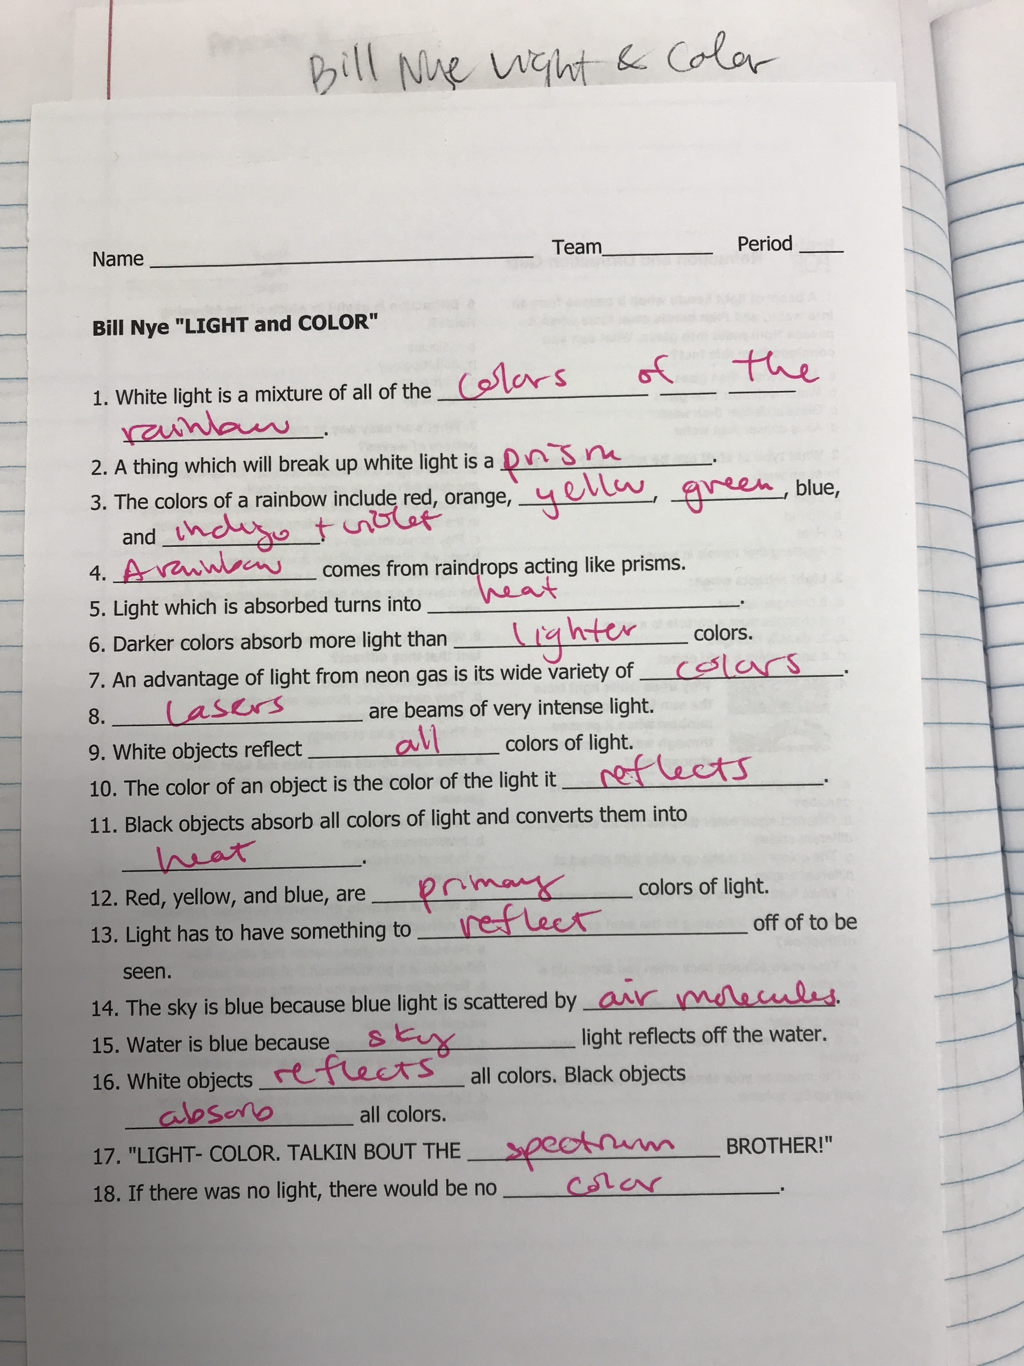 Bill Nye Light & Color
Name ____ Team ____ Period ____
Bill Nye "LIGHT and COLOR"
1. White light is a mixture of all of the colors of the
rainbow.
2. A thing which will break up white light is a prism.
3. The colors of a rainbow include red, orange, yellow, green, blue,
and indigo + violet.
4. A rainbow comes from raindrops acting like prisms.
5. Light which is absorbed turns into heat.
6. Darker colors absorb more light than lighter colors.
7. An advantage of light from neon gas is its wide variety of colors.
8. Lasers are beams of very intense light.
9. White objects reflect all colors of light.
10. The color of an object is the color of the light it reflects.
11. Black objects absorb all colors of light and converts them into
heat.
12. Red, yellow, and blue, are primary colors of light.
13. Light has to have something to reflect off of to be
seen.
14. The sky is blue because blue light is scattered by air molecules.
15. Water is blue because sky light reflects off the water.
16. White objects reflects all colors. Black objects
absorb all colors.
17. "LIGHT- COLOR. TALKIN BOUT THE spectrum BROTHER!"
18. If there was no light, there would be no color.